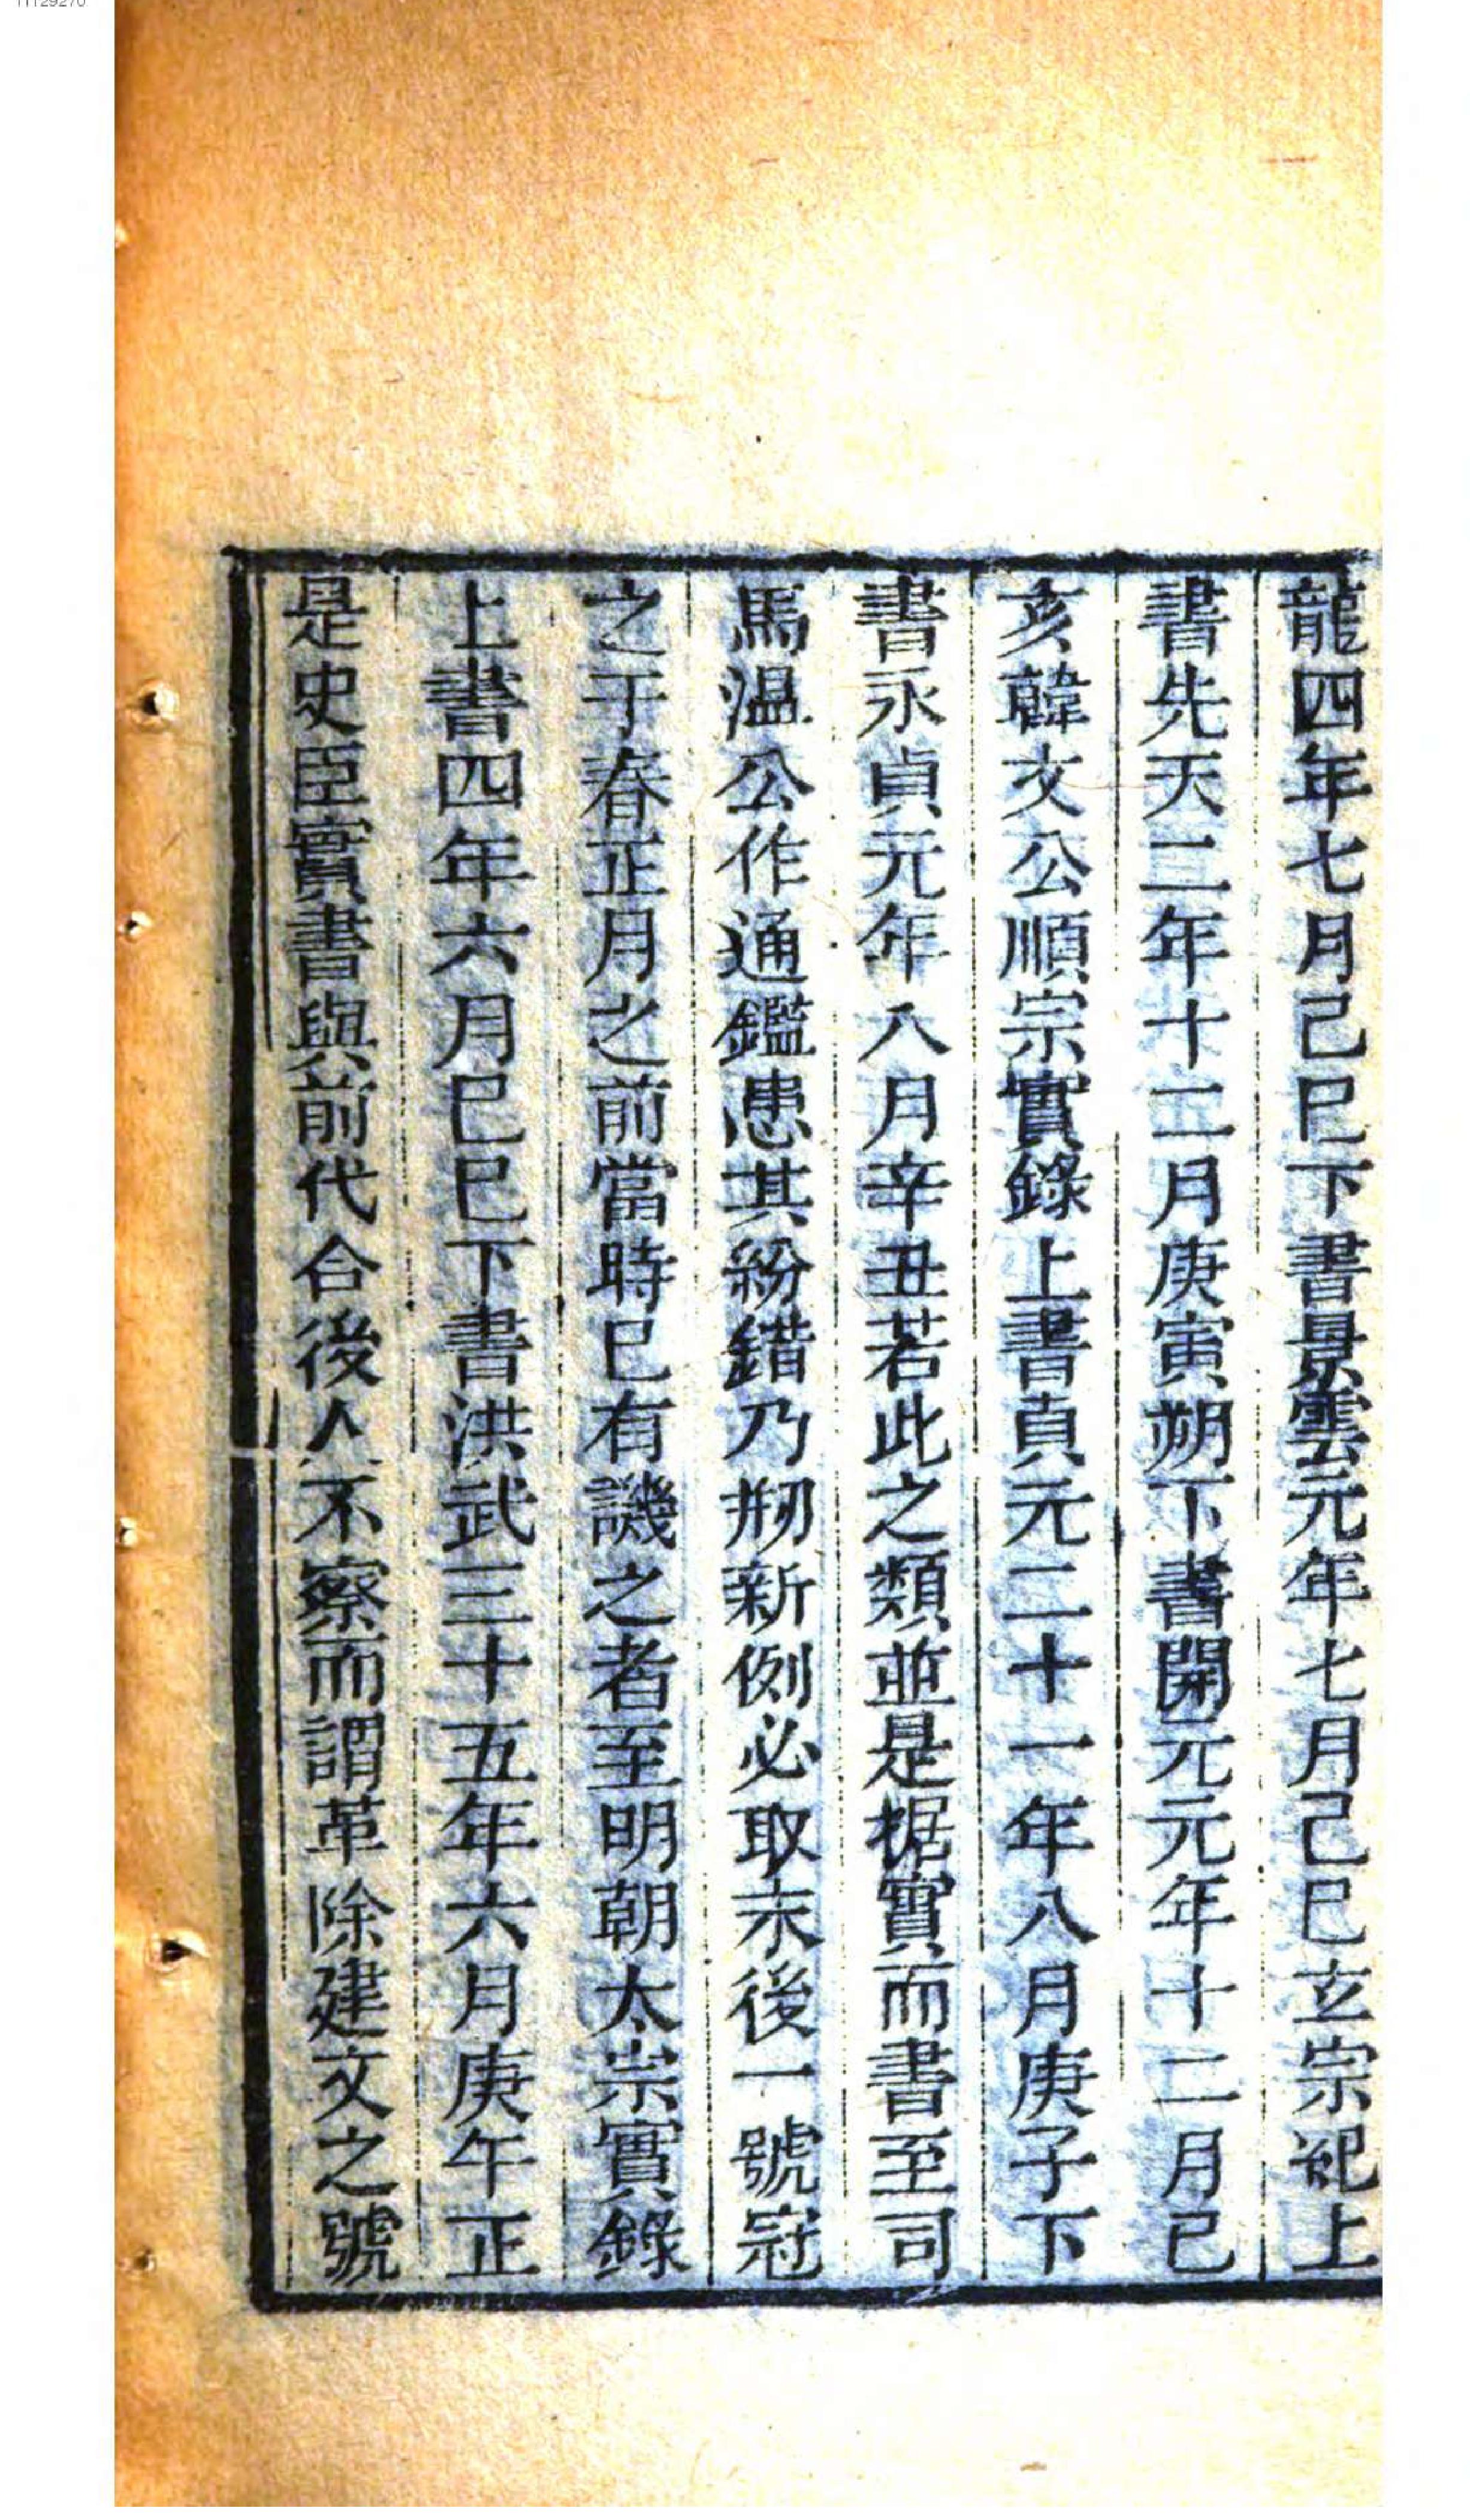 龍四年七月己巳下書景雲元年七月己巳玄宗紀上
書先天二年十二月庚寅朔下書開元元年十二月己
亥韓文公順宗實錄上書貞元二十一年八月庚子下
書永貞元年八月辛丑若此之類並是据實而書至司
馬温公作通鑑患其紛錯乃剏新例必取末後一號冠
之于春正月之前當時巳有譏之者至明朝太宗實錄
上書四年六月巳巳下書洪武三十五年六月庚午正
是史臣實書與前代合後人不察而謂革除建文之號